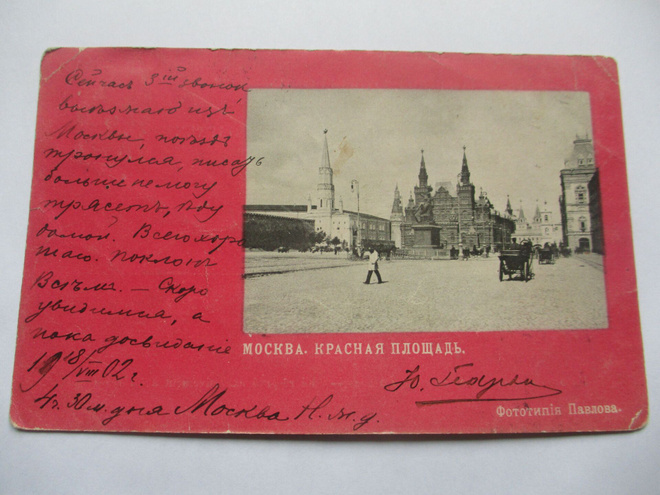 Сейчасъ 3ій звонок
выѣзжаю изъ
Москвы, поѣздъ
тронулся, писать
больше не могу
трясетъ, ѣду
домой. Всего хоро-
шаго. Поклонъ
Всѣмъ. — Скоро
увидимся, а
пока досвиданіе
19 18/VIII 02 г.
4 ч. 30 м. дня Москва Н. ж. д.
МОСКВА. КРАСНАЯ ПЛОЩАДЬ.
Ю.
Фототипія Павлова.